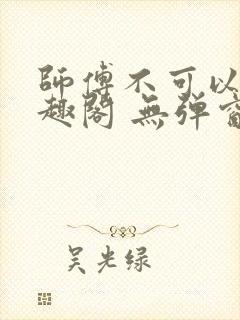 師傅不可以
趣閣 無弹窗
吴光绿